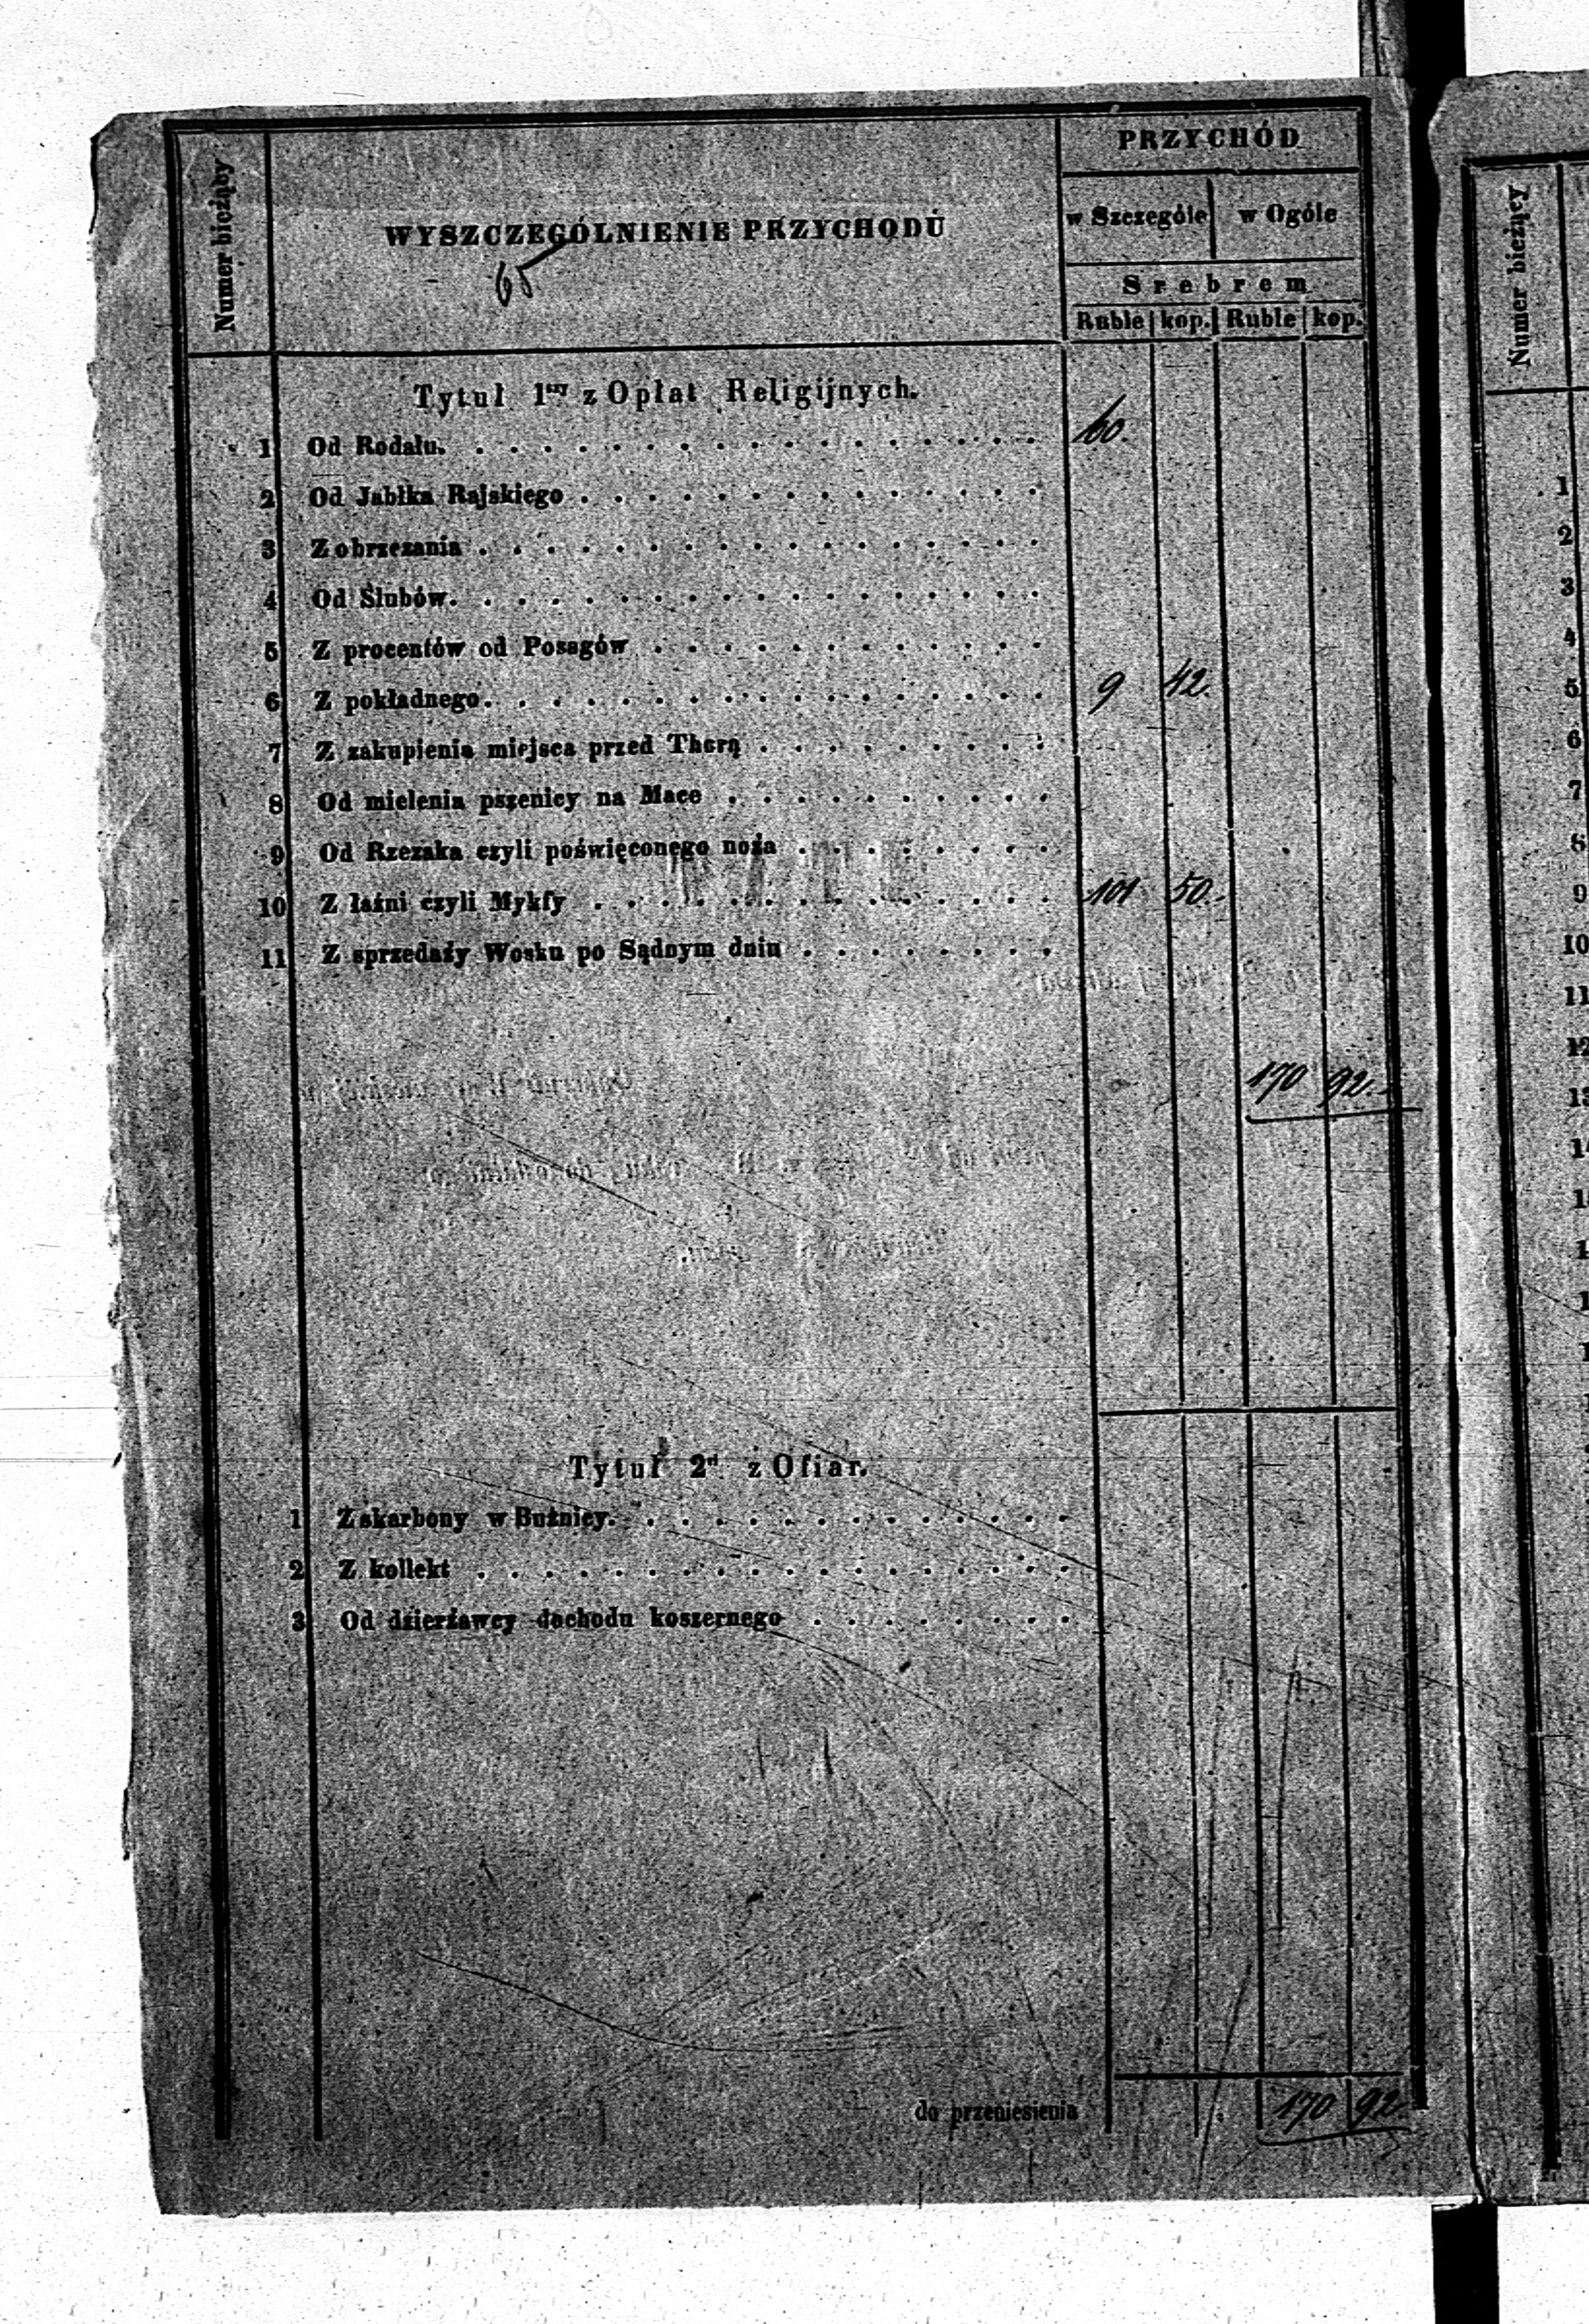 PRZYCHÓD
Numer bieżący
WYSZCZEGÓLNIENIE PRZYCHODU
w Szczególe w Ogóle
65
Srebrem
Ruble kop. Ruble kop.
Tytuł 1szy z Opłat Religijnych.
1 Od Rodału. 60.
2 Od Jabłka Rajskiego
3 Z obrzezania
4 Od Ślubów.
5 Z procentów od Posagów
6 Z pokładnego. 9 42.
7 Z zakupienia miejsca przed Thorą
8 Od mielenia pszenicy na Mace
9 Od Rzezaka czyli poświęconego noża
10 Z łaźni czyli Mykfy 101 50.
11 Z sprzedaży Wosku po Sądnym dniu
170 92.
Tytuł 2gi z Ofiar.
1 Z skarbony w Bużnicy.
2 Z kollekt
3 Od dzierżawcy dochodu koszernego
do przeniesienia 170 92.
Numer bieżący
1
2
3
4
5
6
7
8
9
10
11
12